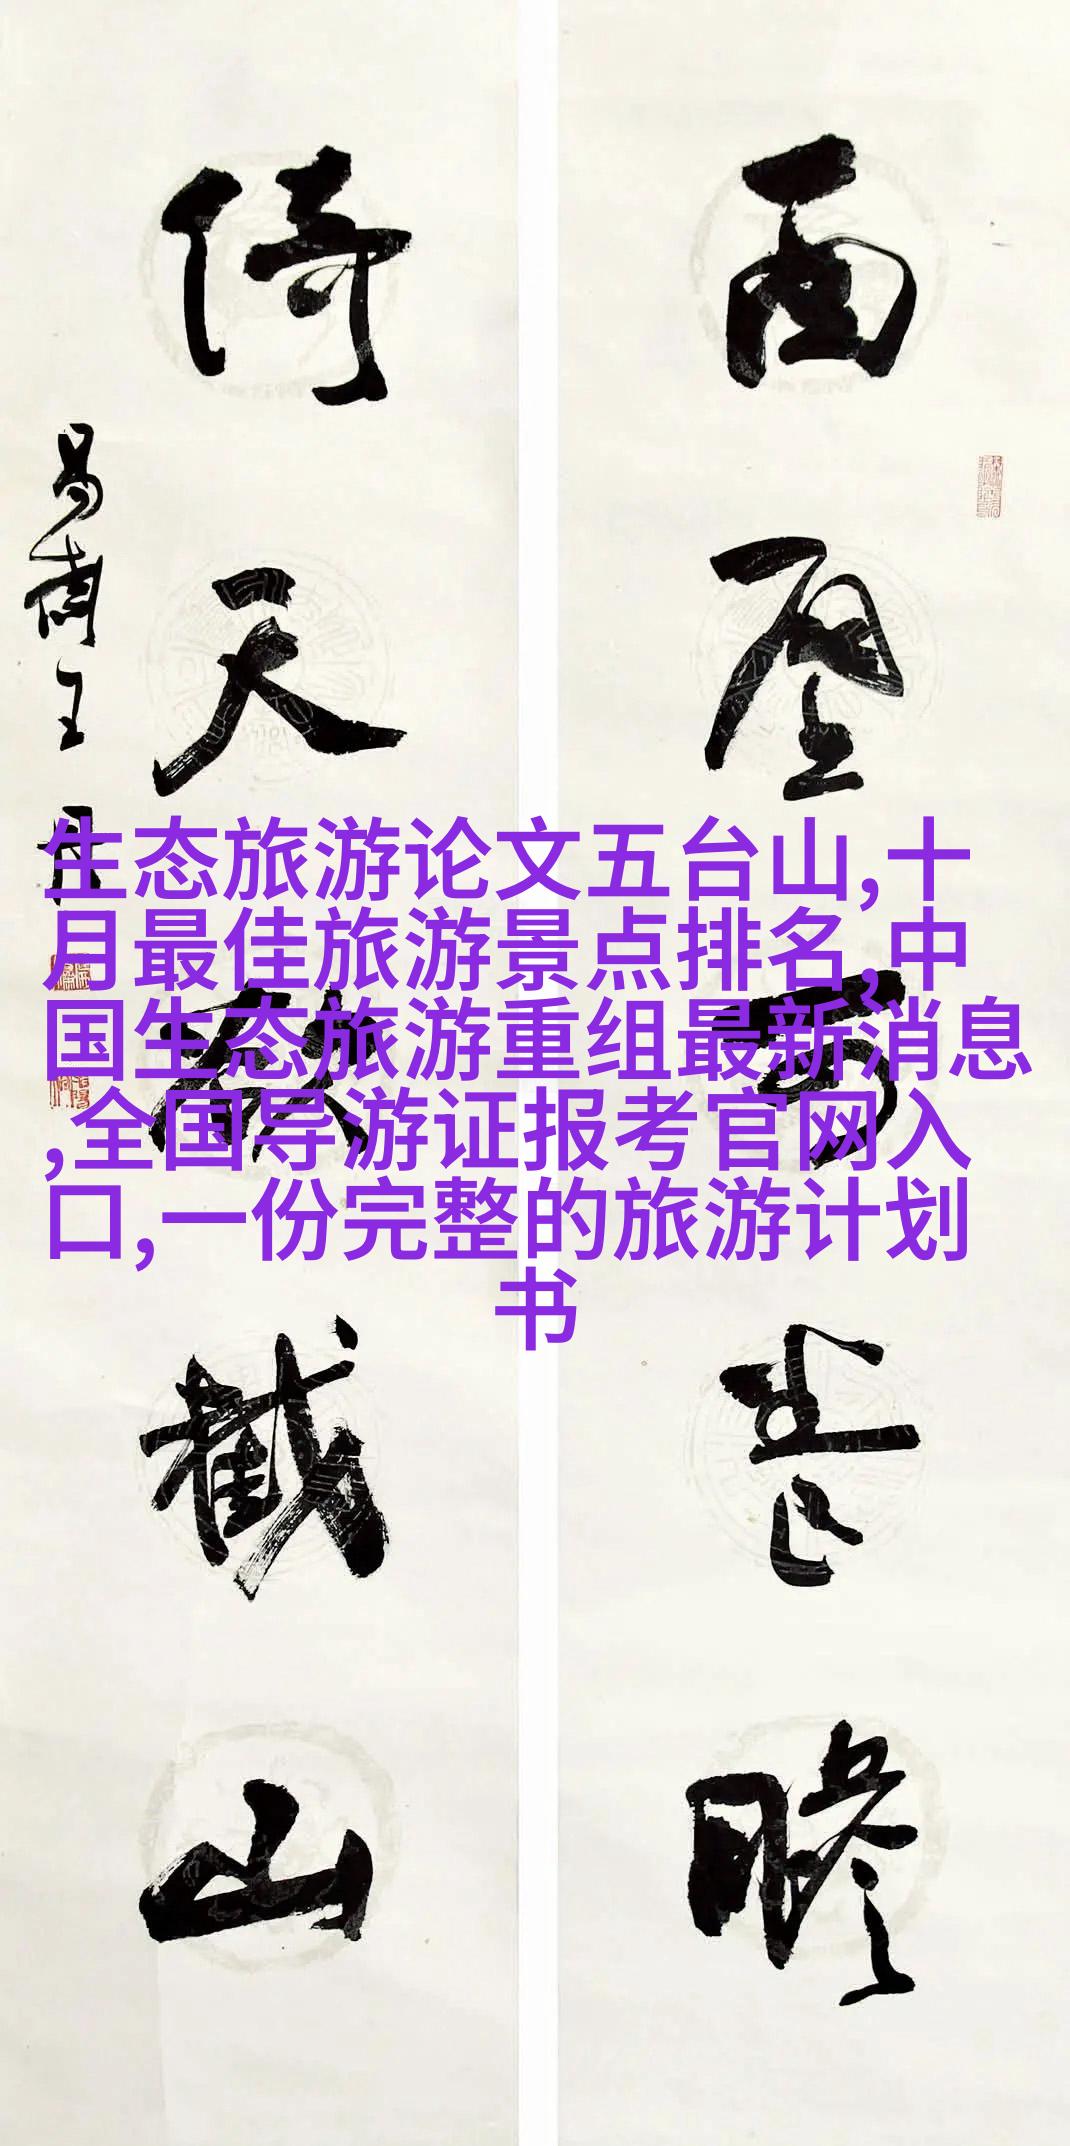 面壁可長瞻
倚天欲截山
生态旅游论文五台山,十
月最佳旅游景点排名,中
国生态旅游重组最新消息
,全国导游证报考官网入
口,一份完整的旅游计划
书